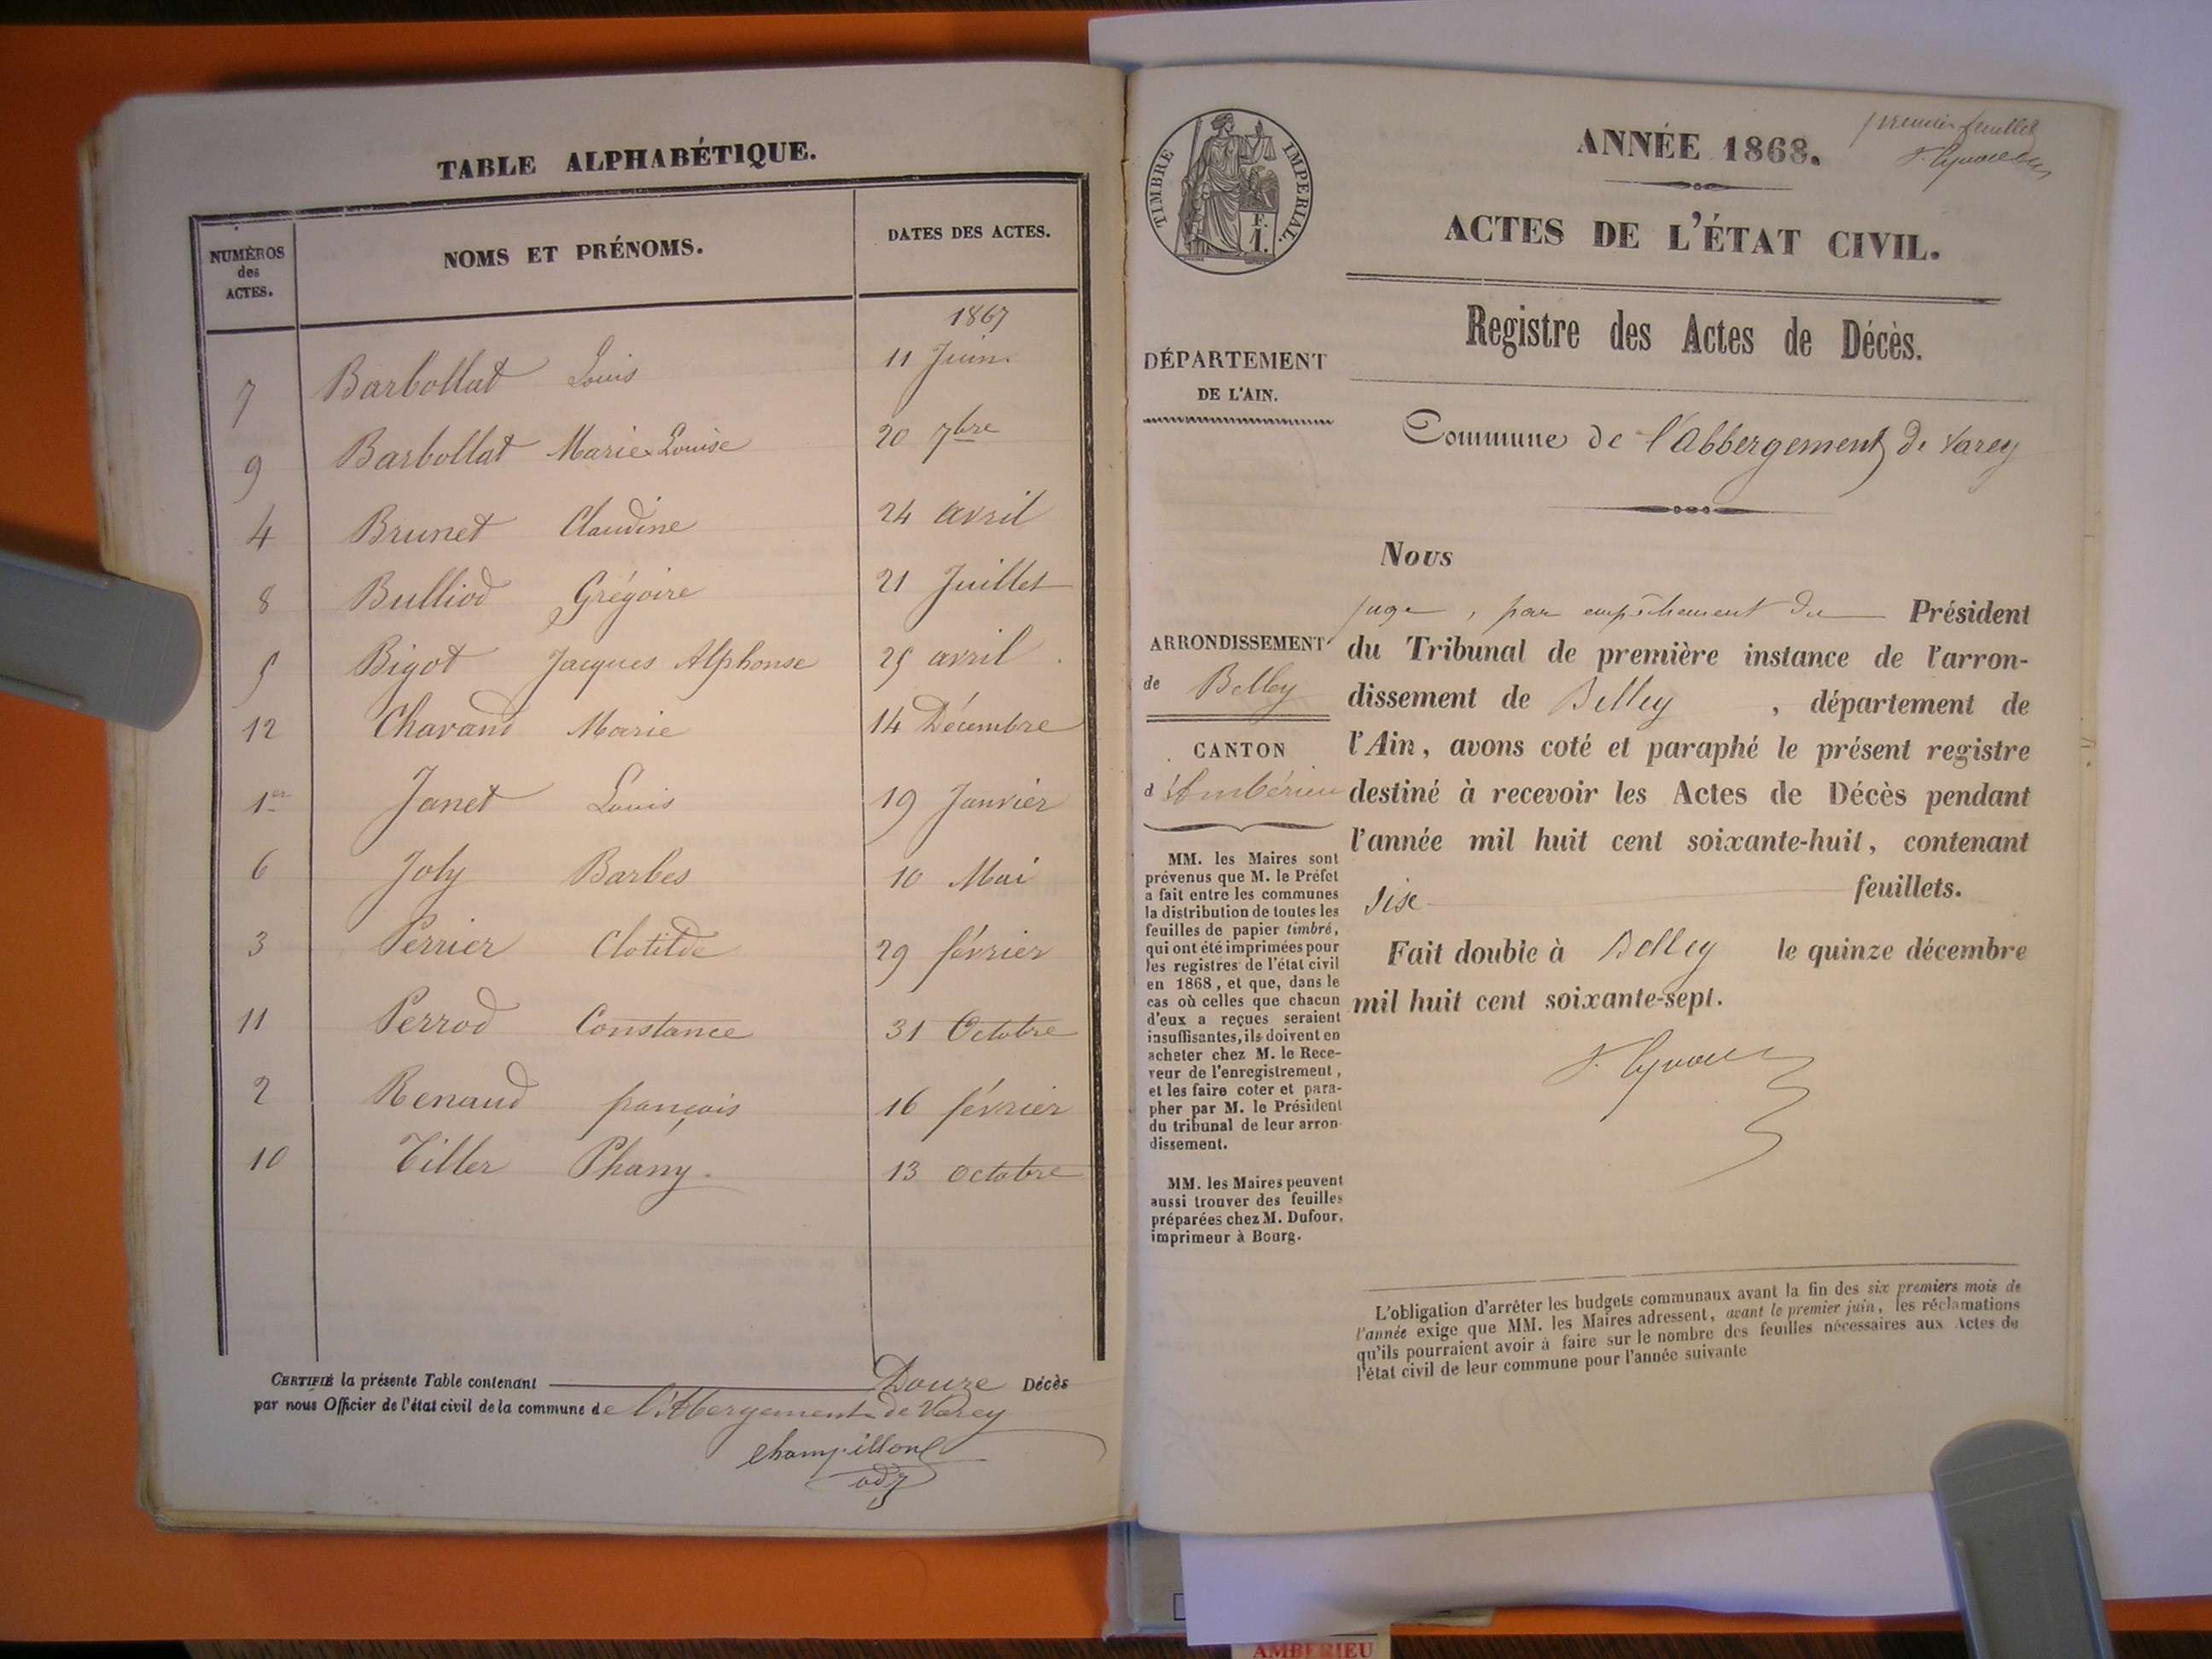 TABLE ALPHABÉTIQUE.
NUMÉROS des ACTES.
NOMS ET PRÉNOMS.
DATES DES ACTES.
1867
7 Barbollat Louis 11 Juin
9 Barbollat Marie Louise 20 7bre
4 Brunet Claudine 24 avril
8 Bulliod Grégoire 21 Juillet
5 Bigot Jacques Alphonse 25 avril
12 Chavand Marie 14 Décembre
1er Janet Louis 19 Janvier
6 Joly Barbes 10 Mai
3 Perrier Clotilde 29 février
11 Perrod Constance 31 Octobre
2 Renaud françois 16 février
10 Tiller Phany. 13 octobre
CERTIFIÉ la présente Table contenant Douze Décès
par nous Officier de l'état civil de la commune de l'Abergement de Varey
Champillon
adj
premier feuillet
TIMBRE IMPERIAL.
F.
1.
ANNÉE 1868.
ACTES DE L'ÉTAT CIVIL.
Registre des Actes de Décès.
DÉPARTEMENT
DE L'AIN.
Commune de l'Abbergement de Varey
ARRONDISSEMENT
de Belley
CANTON
d'Ambérieu
MM. les Maires sont
prévenus que M. le Préfet
a fait entre les communes
la distribution de toutes les
feuilles de papier timbré,
qui ont été imprimées pour
les registres de l'état civil
en 1868, et que, dans le
cas où celles que chacun
d'eux a reçues seraient
insuffisantes, ils doivent en
acheter chez M. le Rece-
veur de l'enregistrement,
et les faire coter et para-
pher par M. le Président
du tribunal de leur arron-
dissement.
MM. les Maires peuvent
aussi trouver des feuilles
préparées chez M. Dufour,
imprimeur à Bourg.
Nous
juge, par empêchement du Président
du Tribunal de première instance de l'arron-
dissement de Belley, département de
l'Ain, avons coté et paraphé le présent registre
destiné à recevoir les Actes de Décès pendant
l'année mil huit cent soixante-huit, contenant
sise feuillets.
Fait double à Belley le quinze décembre
mil huit cent soixante-sept.
L'obligation d'arrêter les budgets communaux avant la fin des six premiers mois de
l'année exige que MM. les Maires adressent, avant le premier juin, les réclamations
qu'ils pourraient avoir à faire sur le nombre des feuilles nécessaires aux Actes de
l'état civil de leur commune pour l'année suivante
AMBERIEU